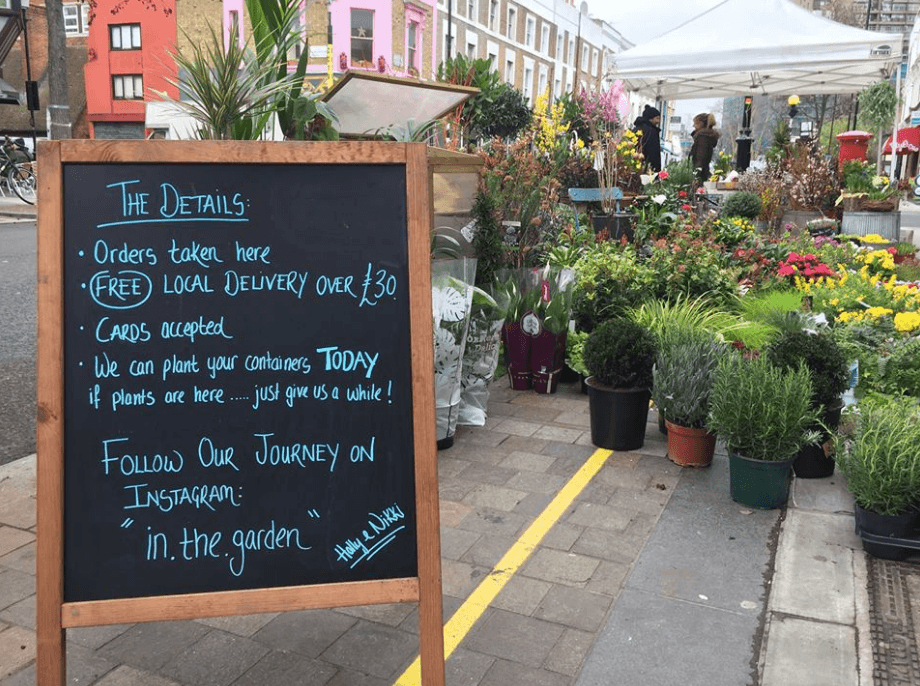 THE DETAILS:
• Orders taken here
• FREE LOCAL DELIVERY OVER £30
• CARDS accepted
• We can plant your containers TODAY
if plants are here ..... just give us a while!
FOLLOW OUR JOURNEY ON
INSTAGRAM:
"in.the.garden"
Holly & Nikki